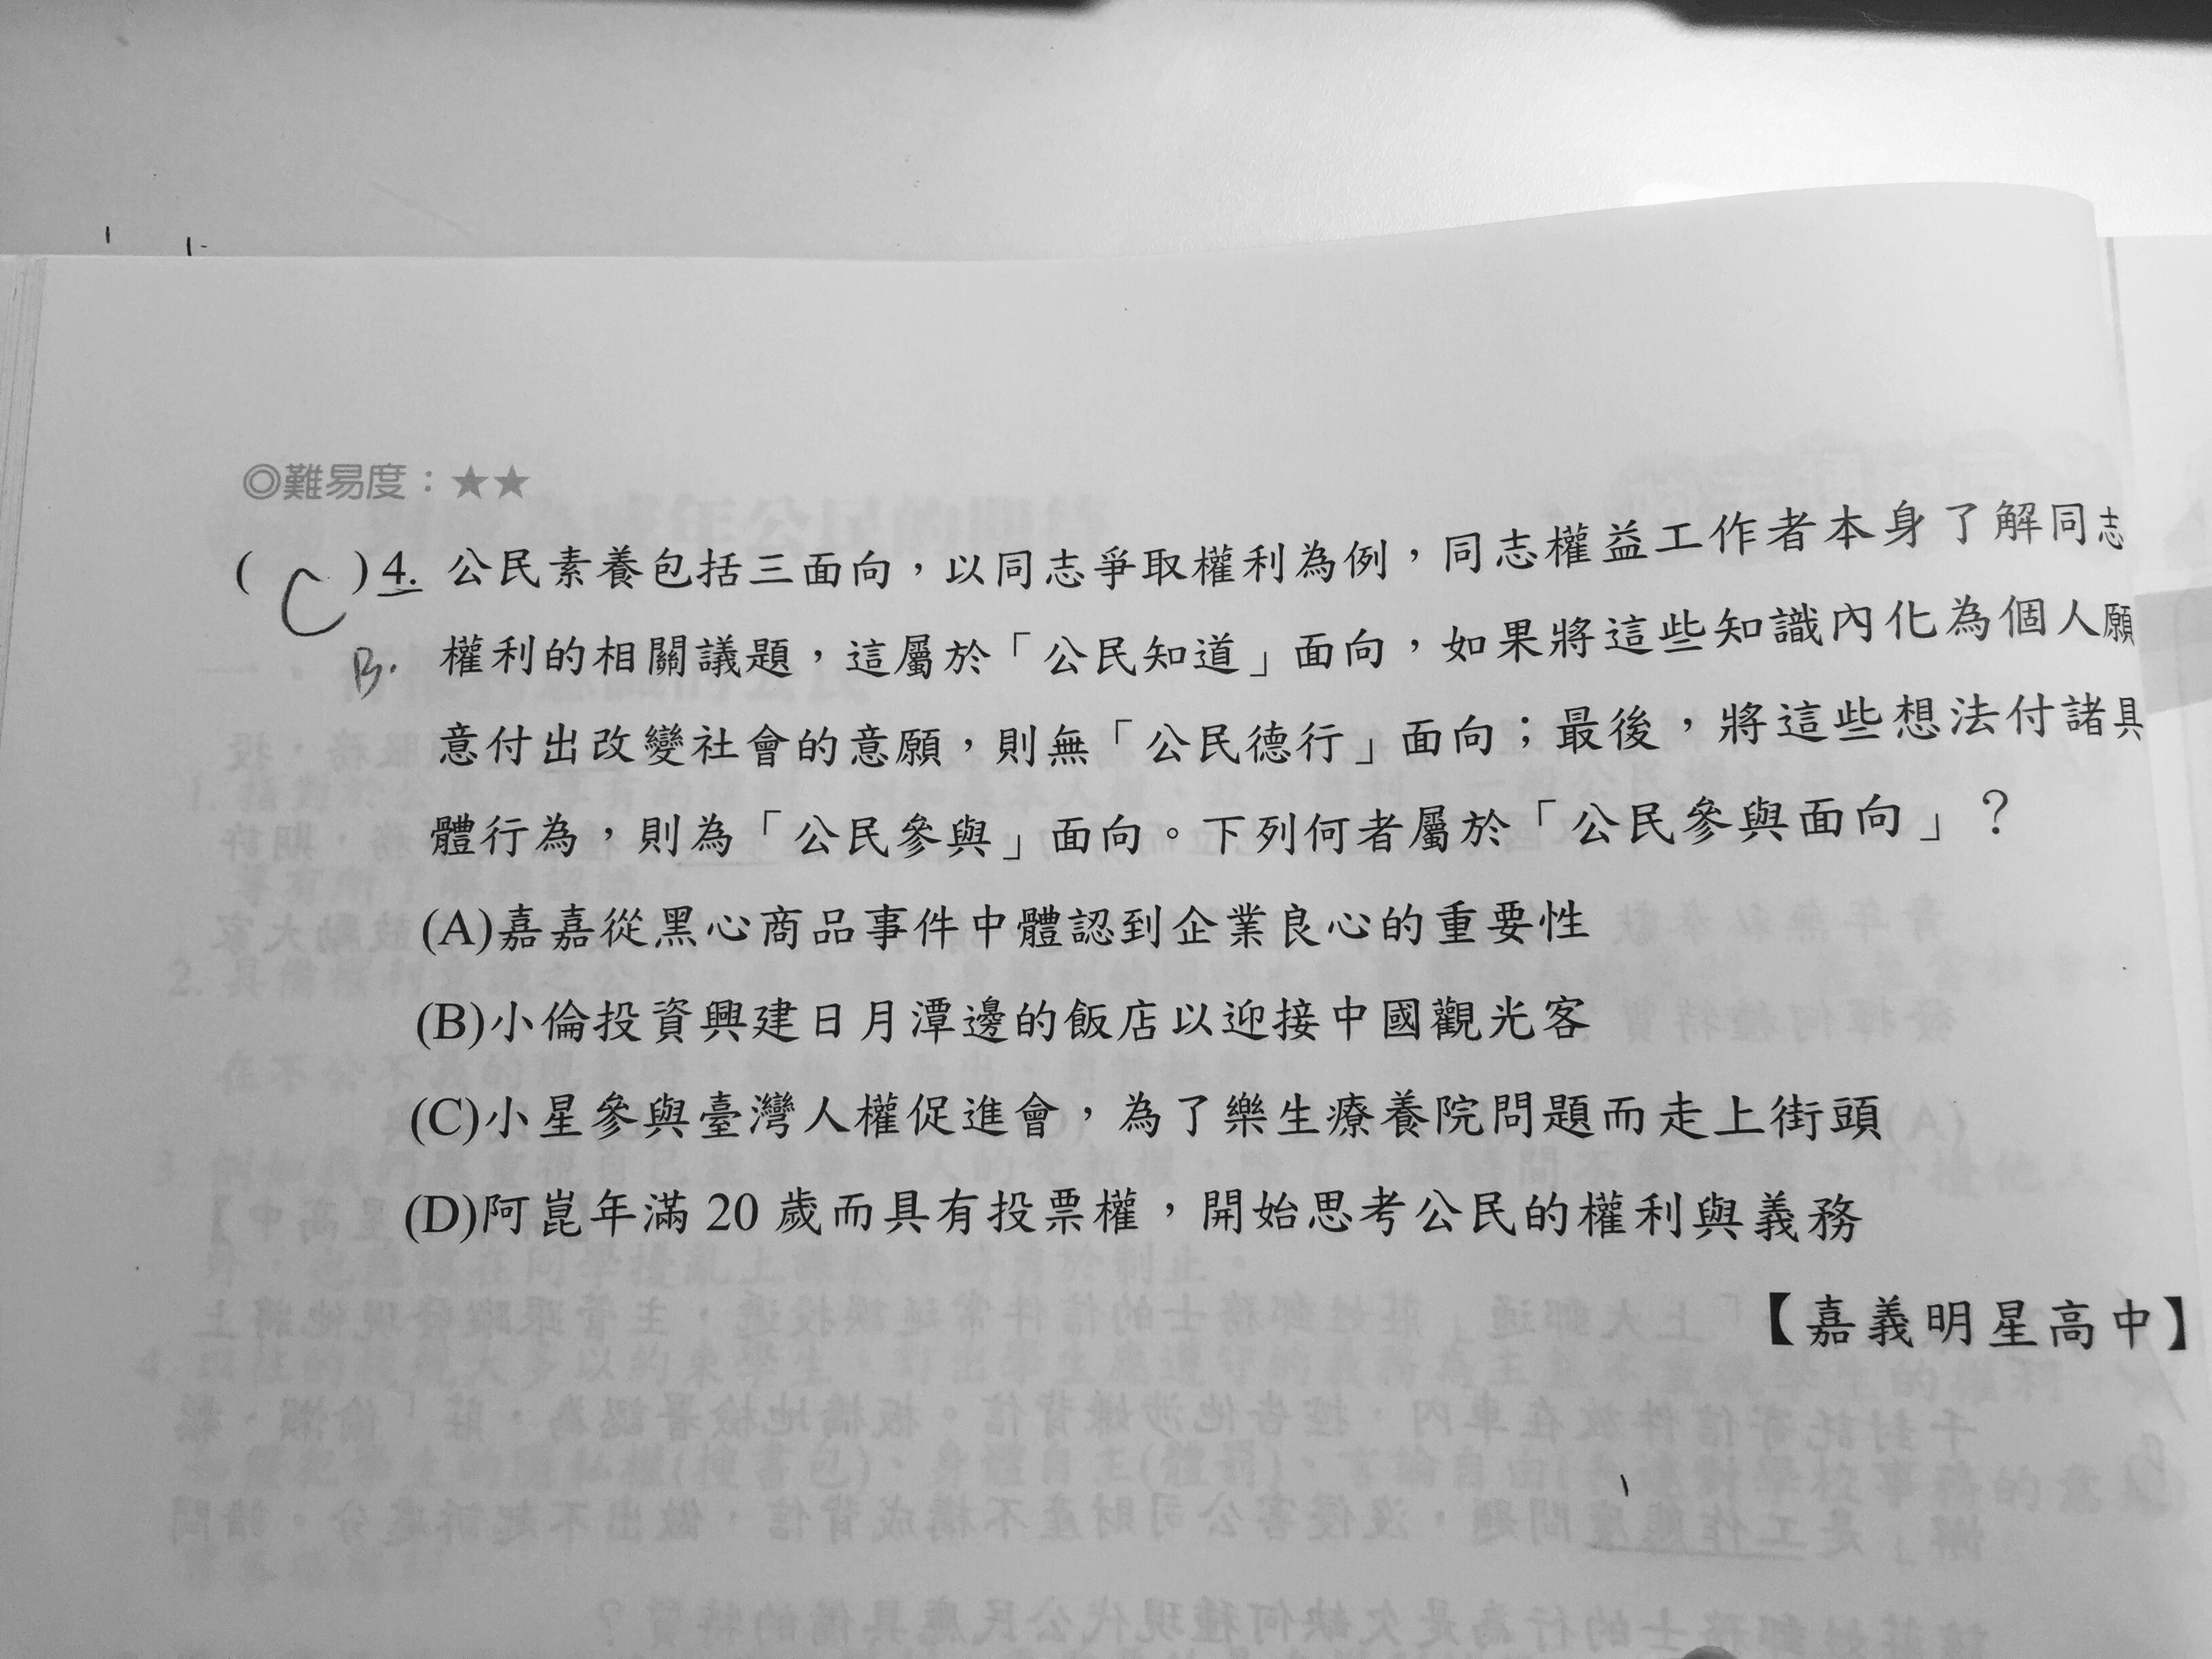 ◎難易度：★★
( C )4. 公民素養包括三面向，以同志爭取權利為例，同志權益工作者本身了解同志
B. 權利的相關議題，這屬於「公民知道」面向，如果將這些知識內化為個人願
意付出改變社會的意願，則無「公民德行」面向；最後，將這些想法付諸具
體行為，則為「公民參與」面向。下列何者屬於「公民參與面向」？
(A)嘉嘉從黑心商品事件中體認到企業良心的重要性
(B)小倫投資興建日月潭邊的飯店以迎接中國觀光客
(C)小星參與臺灣人權促進會，為了樂生療養院問題而走上街頭
(D)阿崑年滿 20 歲而具有投票權，開始思考公民的權利與義務
【嘉義明星高中】